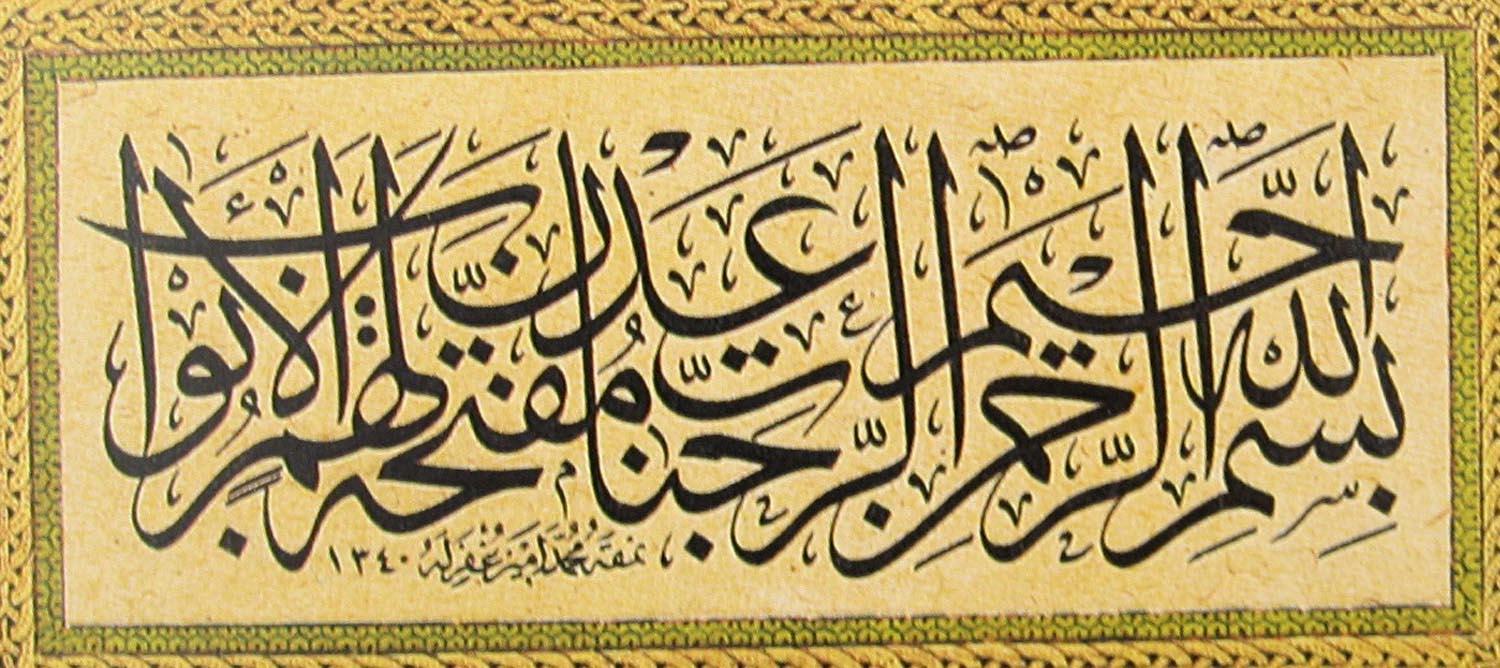 بِسْمِ اللّٰهِ الرَّحْمٰنِ الرَّحِيمِ جَنَّاتِ عَدْنٍ مُفَتَّحَةً لَهُمُ الْاَبْوَابُ
نمقه محمد امين غفر له ١٣٤٠